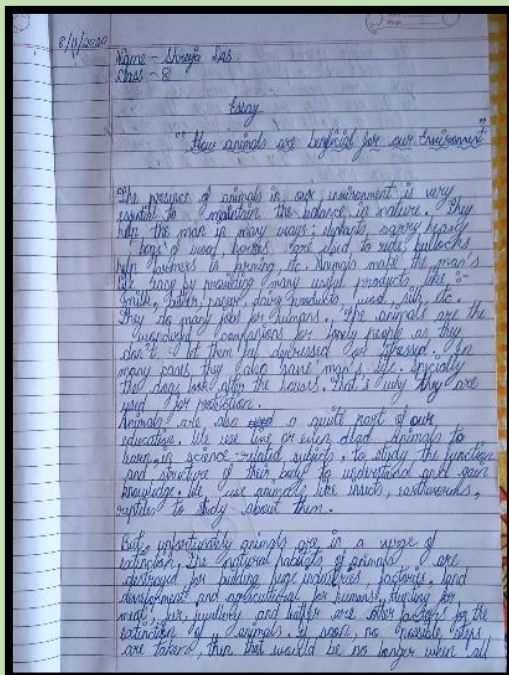 8/11/2020
Name - Shreya Das
Class - 8
Essay
"How animals are beneficial for our Environment"
The presence of animals in our environment is very
essential to maintain the balance in nature. They
help the man in many ways; elephants carry heavy
logs of wood, horses are used to ride, bullocks
help farmers in farming, etc. Animals make the man's
life easy by providing many useful products like :-
milk, butter, paneer, dairy products, wool, silk, etc.
They do many jobs for humans. The animals are the
wonderful companions for lonely people as they
don't let them feel depressed or stressed. In
many cases they also save man's life. Specially
the dogs look after the houses. That's why they are
used for protection.
Animals are also a quite part of our
education. We use live or even dead animals to
learn, in science-related subjects, to study the function
and structure of their body to understand and gain
knowledge. We use animals like insects, earthworms,
reptiles to study about them.
But, unfortunately animals are in a verge of
extinction. The natural habitats of animals are
destroyed for building huge industries, factories, land
development and agricultural for humans, hunting for
meat, fur, jewellery and leather are other factors for the
extinction of animals. If soon, no possible steps
are taken, then that would be no longer when all